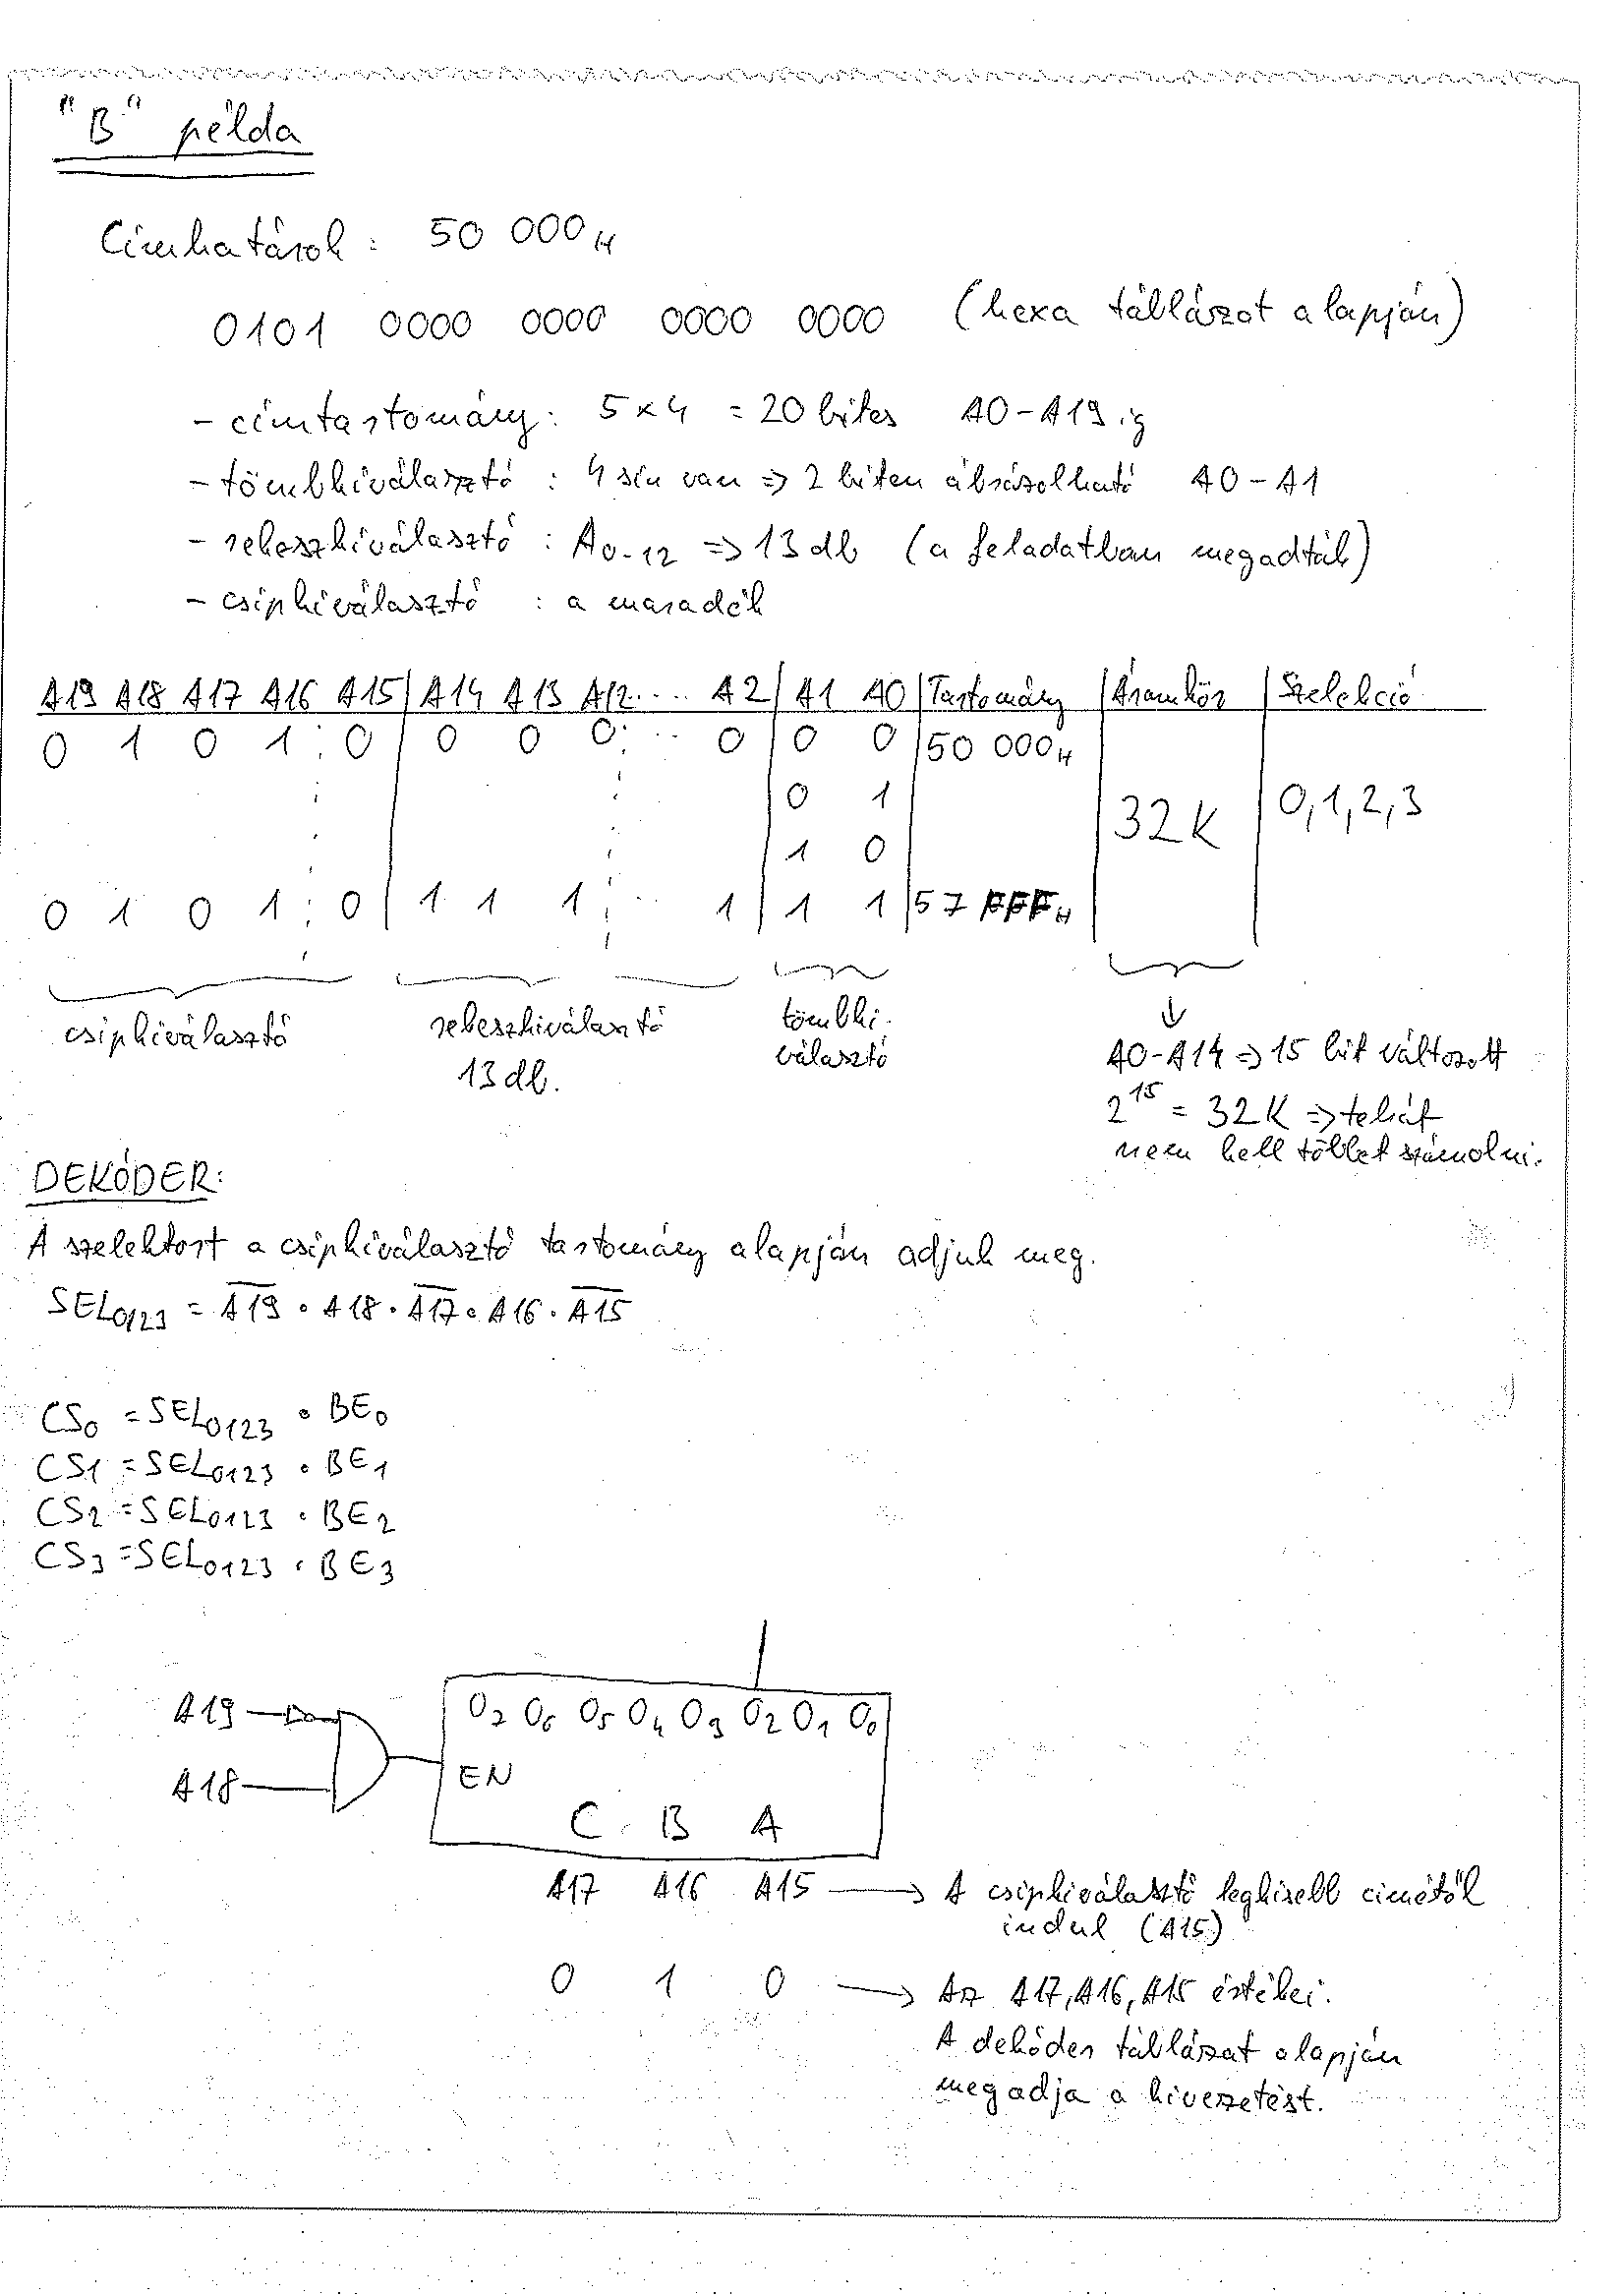 "B" példa
Címhatárok: 50 000H
0101 0000 0000 0000 0000 (hexa táblázat alapján)
- címtartomány: 5x4 = 20 bites A0-A19 ig
- tömbkiválasztó: 4 sín van => 2 biten ábrázolható A0-A1
- rekeszkiválasztó: A0-12 => 13 db (a feladatban megadták)
- csipkiválasztó : a maradék
A19 A18 A17 A16 A15 | A14 A13 A12 .... A2 | A1 A0 | Tartomány | Áramkör | Szelekció
0 1 0 1 0 | 0 0 0 ... 0 | 0 0 | 50 000H
0 1
32K 0,1,2,3
1 0
0 1 0 1 0 | 1 1 1 ... 1 | 1 1 | 57 FFFH
csipkiválasztó rekeszkiválasztó tömbki-
13 db. választó
↓
A0-A14 => 15 bit változott
2^15 = 32K => tehát
nem kell többet számolni.
DEKÓDER:
A szelektort a csipkiválasztó tartomány alapján adjuk meg.
SEL0123 = A̅1̅9̅ • A18 • A̅1̅7̅ • A16 • A̅1̅5̅
CS0 = SEL0123 • BE0
CS1 = SEL0123 • BE1
CS2 = SEL0123 • BE2
CS3 = SEL0123 • BE3
A19
O7 O6 O5 O4 O3 O2 O1 O0
A18
EN
C B A
A17 A16 A15 → A csipkiválasztó legkisebb címétől
indul (A15)
0 1 0 → Az A17, A16, A15 értékei.
A dekóder táblázat alapján
megadja a kivezetést.